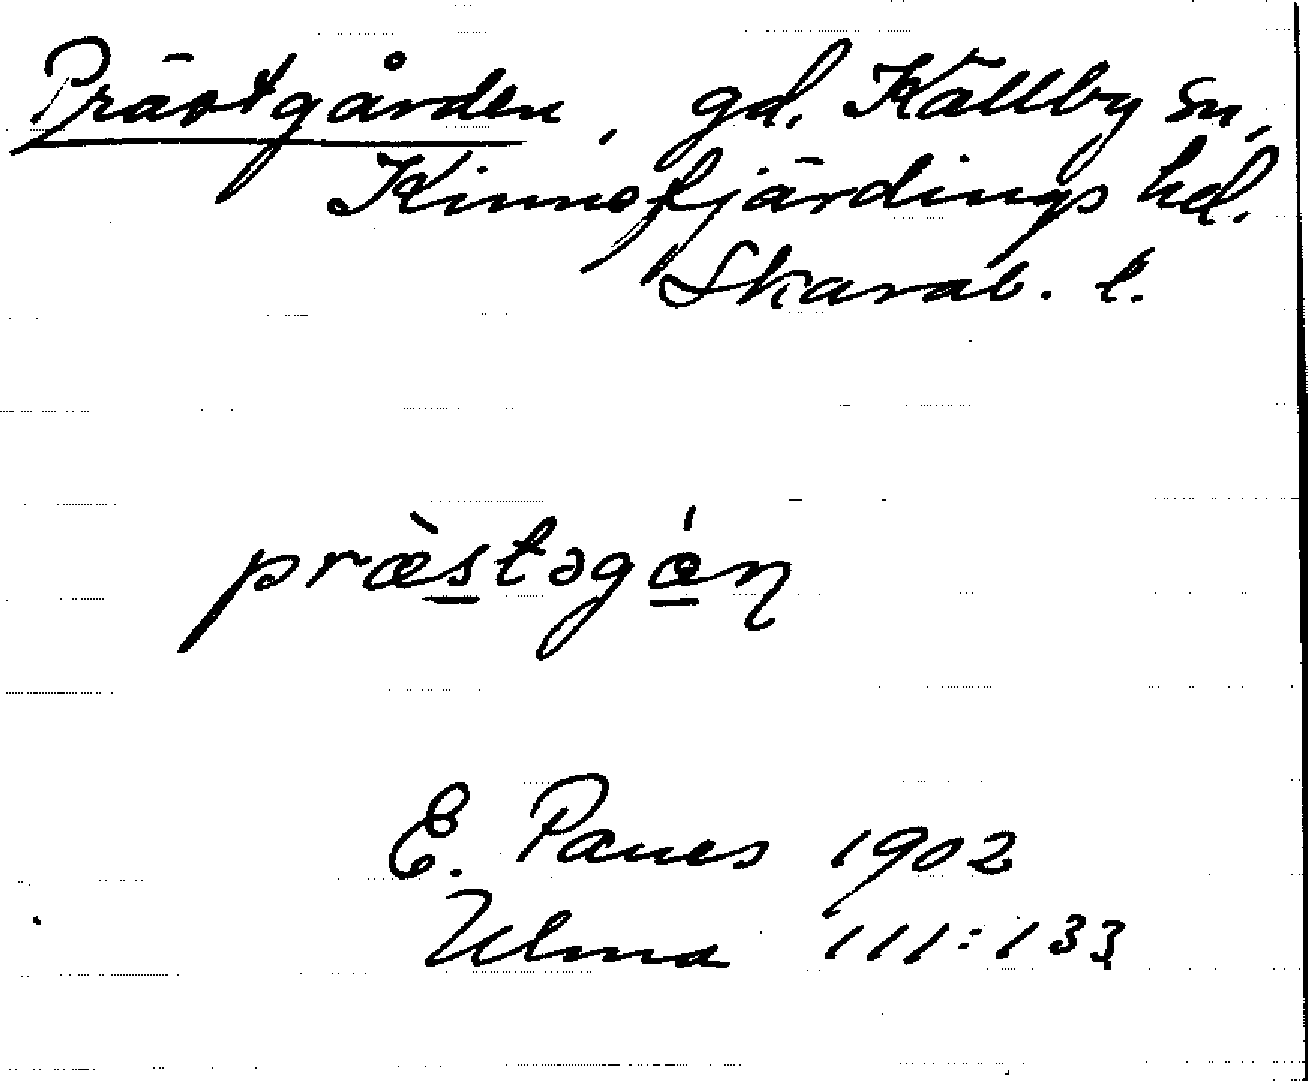 Prästgården, gd. Källby sn,
Kinnefjärdings hd.
Skarab. l.
præ̀stəgɵ́ɳ
E. Panes 1902
Ulma 111:133